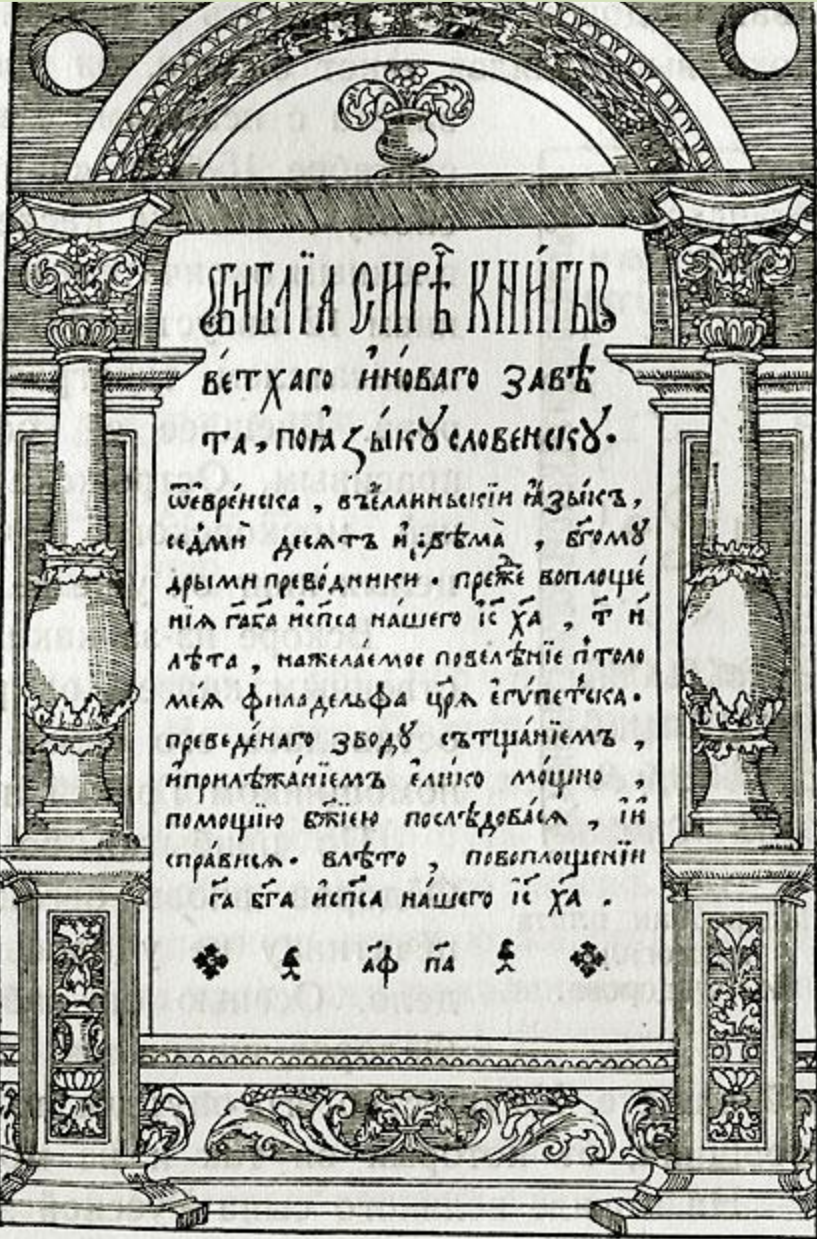 Би́блїа сирѣ́ч кни́гы
ве́тхаго и҆но́ваго завѣ
та, поꙗ҆зы́кꙋ словенскꙋ.
ѿевре́йска, въе́ллиньскїи ꙗ҆зы́къ,
се́дмиⷣ десятъ и҆двѣма̀, бг҃омꙋ
дрыми прево́дники. пре́жⷣе воплоще́
нїя га҃ бг҃а и҆сп҃са на́шего і҆с҃ ха҃, т҃ и҆
лѣ́та, нажела́емое повелѣ́нїе пто́ло
мея филаде́льфа цр҃я еги́петска.
преведе́наго зводꙋ сътща́нїемъ,
и҆прилѣжа́нїемъ ели́ко мо́щно,
помощїю бж҃їею послѣ́довася, і҆и
спра́вися. влѣ́то, повоплощенїи
га҃ бг҃а и҆сп҃са на́шего і҆с҃ ха҃.
аф҃ па҃